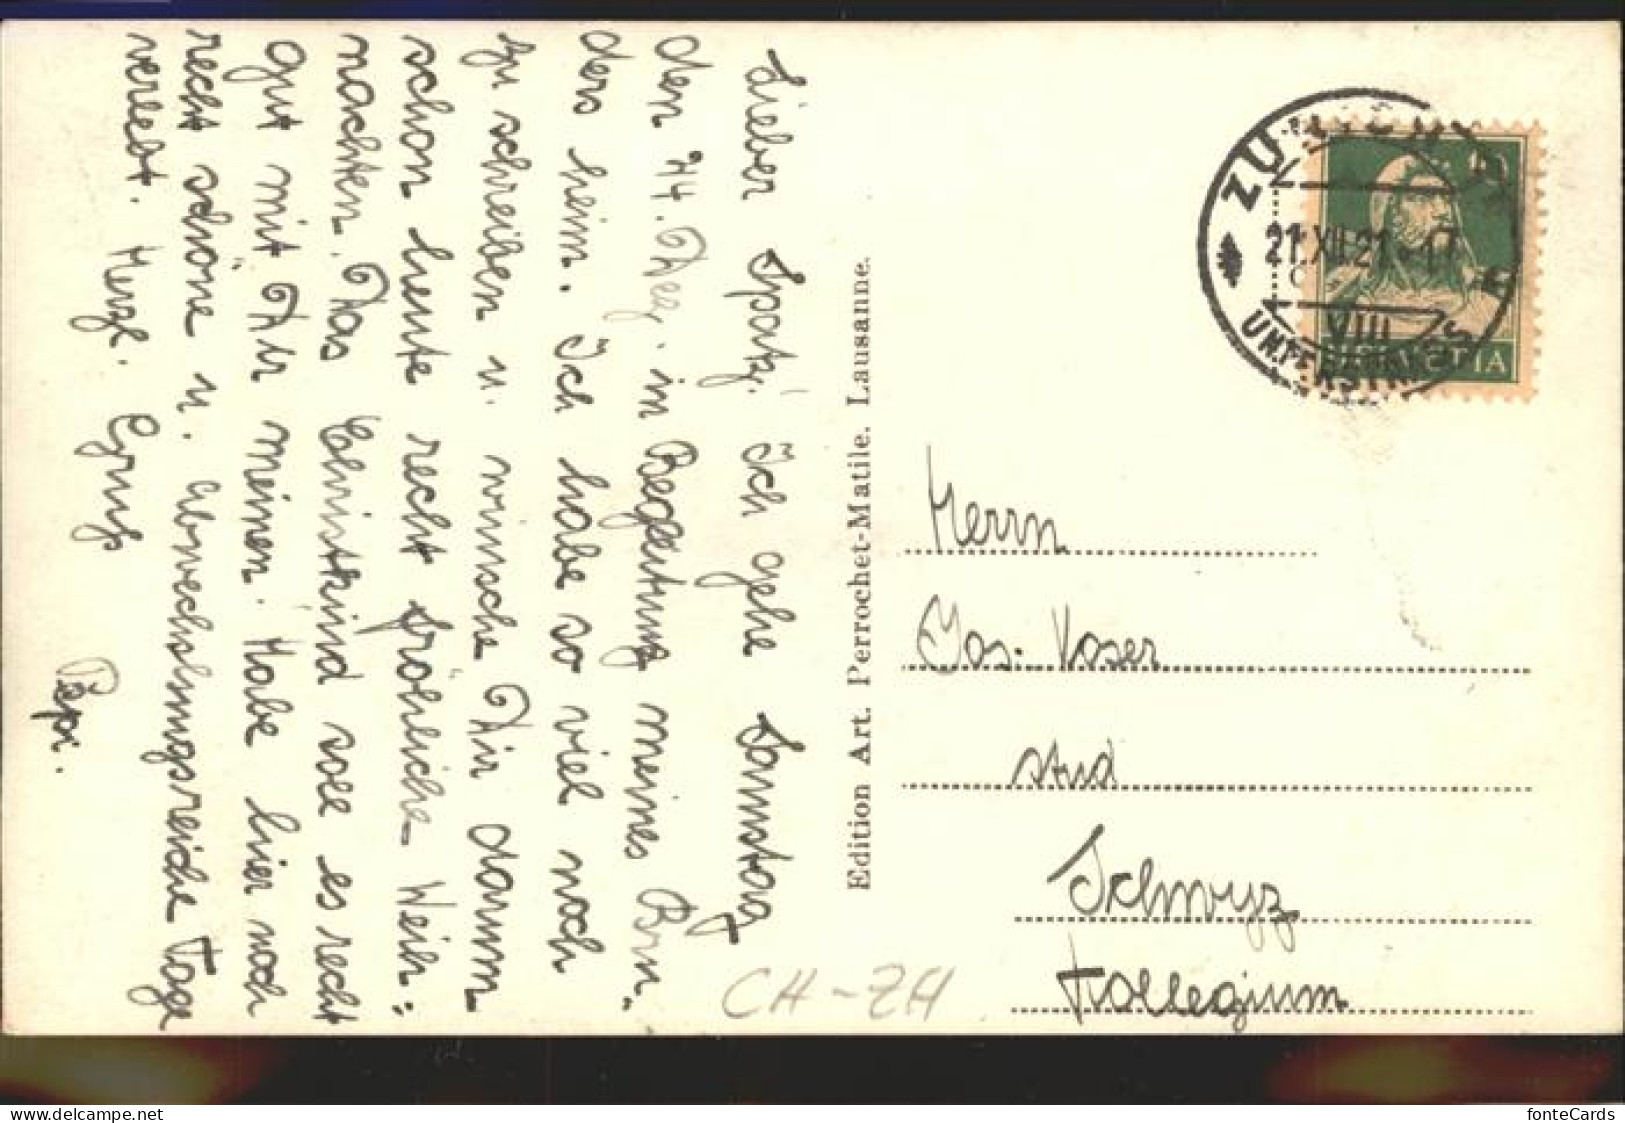 Lieber Spatz! Ich gehe Samstag
den 24. Dez. in Begleitung meines Bru-
ders heim. Ich habe so viel noch
zu schreiben u. wünsche Dir darum
schon heute recht fröhliche Weih-
nachten. Das Christkind soll es recht
gut mit Dir meinen. Habe hier noch
recht schöne u. abwechslungsreiche Tage
verlebt. Herzl. Gruß
Pepi.
Edition Art. Perrochet-Matile. Lausanne.
ZÜRICH
21.XII.21.-17
VIII
UNTERSTRASS
10
HELVETIA
Herrn
Jos. Koser
stud
Schwyz
Kollegium
CH-ZH
fonteCards